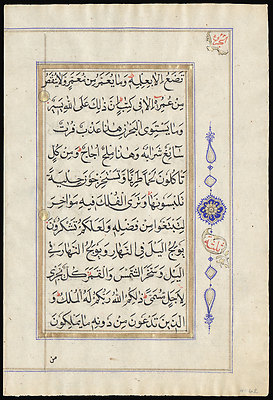 تَضَعُ اِلَّا بِعِلْمِهٖ وَمَا يُعَمَّرُ مِنْ مُعَمَّرٍ وَلَا يُنْقَصُ
مِنْ عُمُرِهٖ اِلَّا فِي كِتَابٍ اِنَّ ذٰلِكَ عَلَى اللّٰهِ يَسِيْرٌ
وَمَا يَسْتَوِي الْبَحْرَانِ هٰذَا عَذْبٌ فُرَاتٌ
سَآئِغٌ شَرَابُهٗ وَهٰذَا مِلْحٌ اُجَاجٌ وَمِنْ كُلٍّ
تَاْكُلُوْنَ لَحْمًا طَرِيًّا وَتَسْتَخْرِجُوْنَ حِلْيَةً
تَلْبَسُوْنَهَا وَتَرَى الْفُلْكَ فِيْهِ مَوَاخِرَ
لِتَبْتَغُوْا مِنْ فَضْلِهٖ وَلَعَلَّكُمْ تَشْكُرُوْنَ
يُوْلِجُ الَّيْلَ فِي النَّهَارِ وَيُوْلِجُ النَّهَارَ فِي
الَّيْلِ وَسَخَّرَ الشَّمْسَ وَالْقَمَرَ كُلٌّ يَجْرِيْ
لِاَجَلٍ مُسَمًّى ذٰلِكُمُ اللّٰهُ رَبُّكُمْ لَهُ الْمُلْكُ وَ
الَّذِيْنَ تَدْعُوْنَ مِنْ دُوْنِهٖ مَا يَمْلِكُوْنَ
من